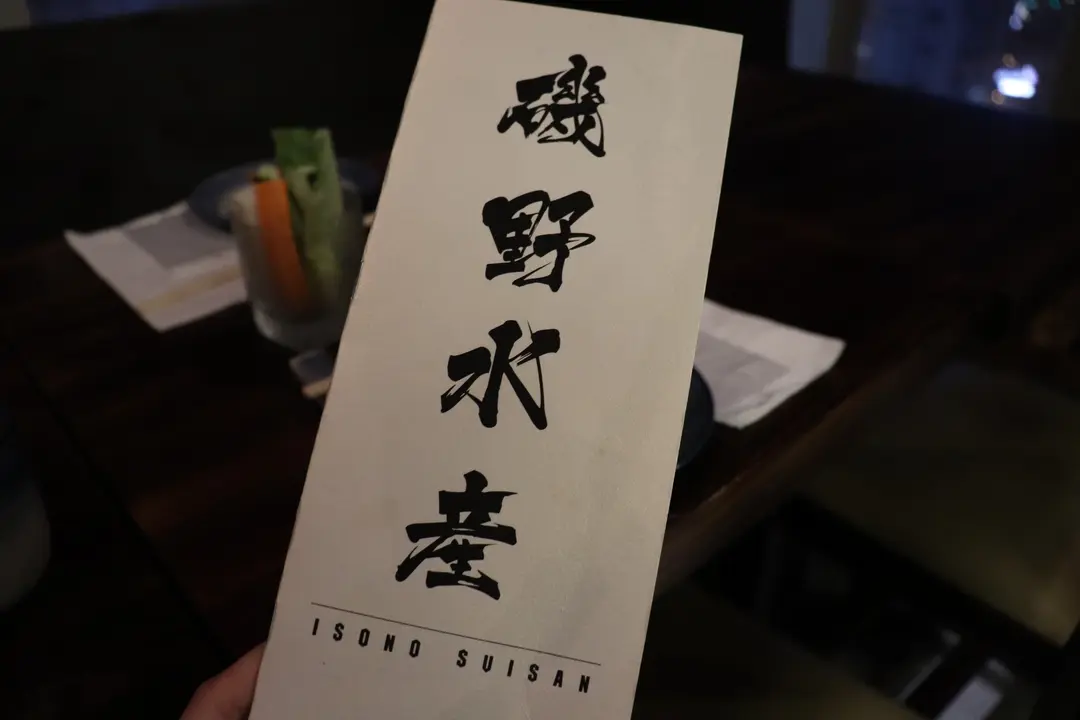 磯野水産
ISONO SUISAN